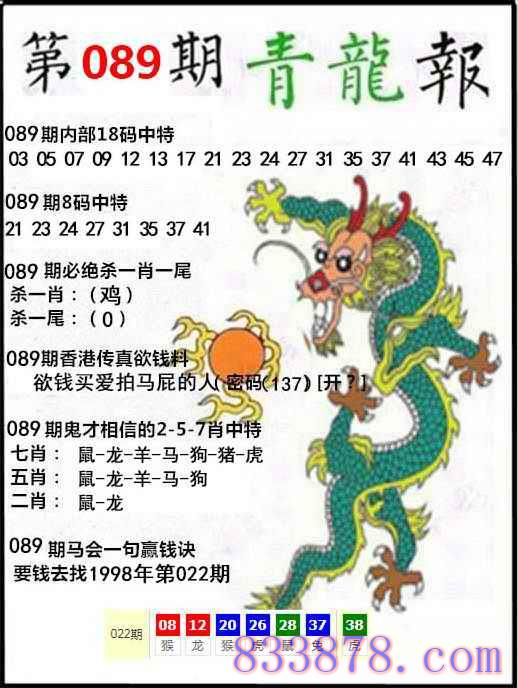 第089期青龍報
089期内部18码中特
03 05 07 09 12 13 17 21 23 24 27 31 35 37 41 43 45 47
089期8码中特
21 23 24 27 31 35 37 41
089期必绝杀一肖一尾
杀一肖：（鸡）
杀一尾：（0）
089期香港传真欲钱料
欲钱买爱拍马屁的人(密码(137)[开?]
089期鬼才相信的2-5-7肖中特
七肖： 鼠-龙-羊-马-狗-猪-虎
五肖： 鼠-龙-羊-马-狗
二肖： 鼠-龙
089期马会一句赢钱诀
要钱去找1998年第022期
022期 08 12 20 26 28 37 38
猴 龙 猴 虎 鼠 兔 虎
833878.com